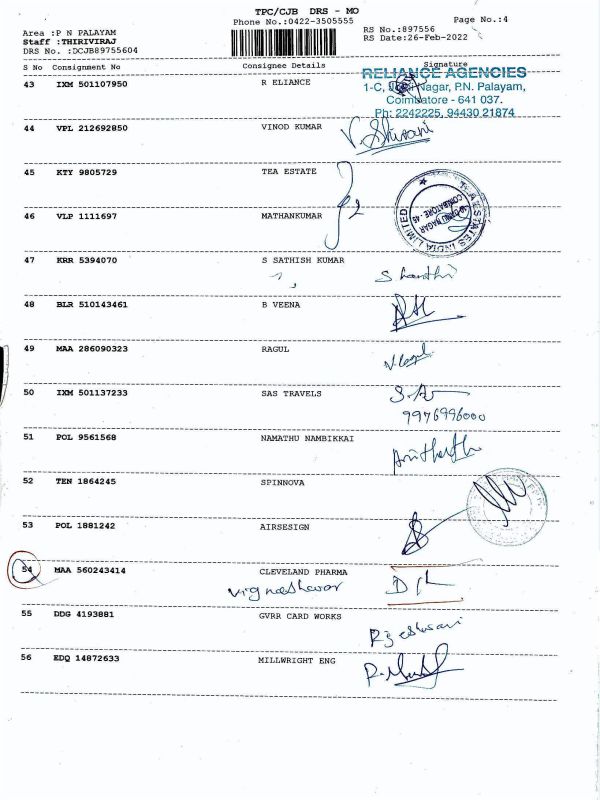 TPC/CJB DRS - MO
Phone No.:0422-3505555
Page No.:4
Area :P N PALAYAM
Staff :THIRIVIRAJ
DRS No. :DCJB89755604
RS No.:897556
RS Date:26-Feb-2022
S No Consignment No Consignee Details Signature
43 IXM 501107950 R RELIANCE
RELIANCE AGENCIES
1-C, Nagar, P.N. Palayam,
Coimbatore - 641 037.
Ph: 2242225, 94430 21874
44 VPL 212692850 VINOD KUMAR
45 KTY 9805729 TEA ESTATE
46 VLP 1111697 MATHANKUMAR
ESTATES INDIA LIMITED
NAGAR
COIMBATORE - 45
47 KRR 5394070 S SATHISH KUMAR
Shanthi
48 BLR 510143461 B VEENA
49 MAA 286090323 RAGUL
50 IXM 501137233 SAS TRAVELS
9976996000
51 POL 9561568 NAMATHU NAMBIKKAI
52 TEN 1864245 SPINNOVA
53 POL 1881242 AIRSESIGN
54 MAA 560243414 CLEVELAND PHARMA
Vignashwar
55 DDG 4193881 GVRR CARD WORKS
56 EDQ 14872633 MILLWRIGHT ENG